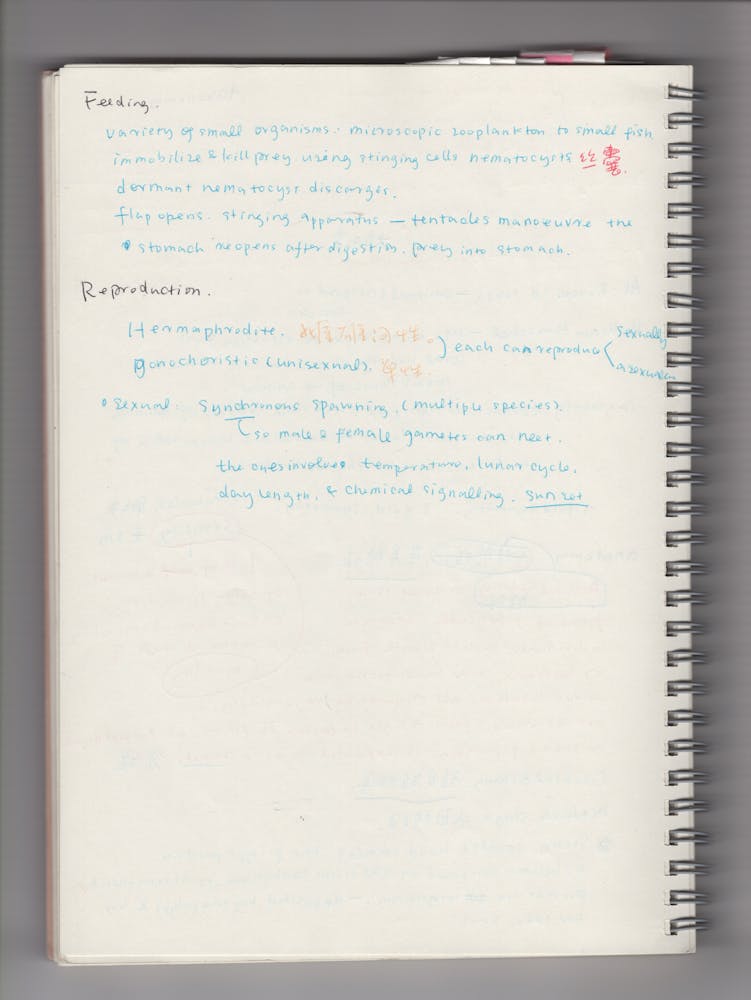 Feeding.
variety of small organisms: microscopic zooplankton to small fish
immobilize & kill prey using stinging cells nematocysts
dormant nematocyst discarges.
flap opens. stinging apparatus — tentacles manoeuvre the
stomach reopens after digestion. prey into stomach.
Reproduction.
Hermaphrodite. 雌雄同性。
gonochoristic (unisexual). 單性. } each can reproduce < sexually
asexually
• sexual: synchronous spawning, (multiple species).
so male & female gametes can meet.
the cues involves temperature, lunar cycle,
day length, & chemical signalling. sunset